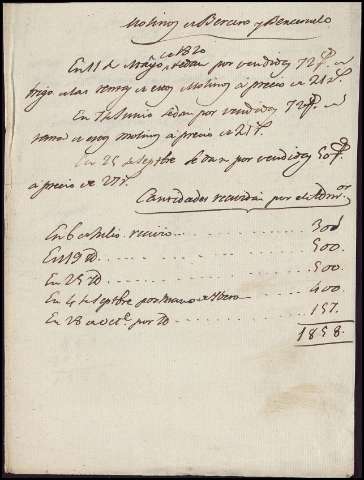 Molinos de Bercero y Benconcelo
En 11 de Mayo de 1820 se dan por vendidas 72 f.s de
trigo de las rentas de estos Molinos á precio de 21 r.s
En 7 de Junio se dan por vendidas 72 f.s de
renta de estos molinos á precio de 21 r.s
En 25 de Septbre se dan por vendidas 50 f.s
á precio de 21 r.s
Cantidades recividas por el Admor
En 6 de Julio recivio 300
En 19 id 500
En 25 id 500
En 4 de Septbre por mano de 400
En 28 de Oct.e por id 157
1858